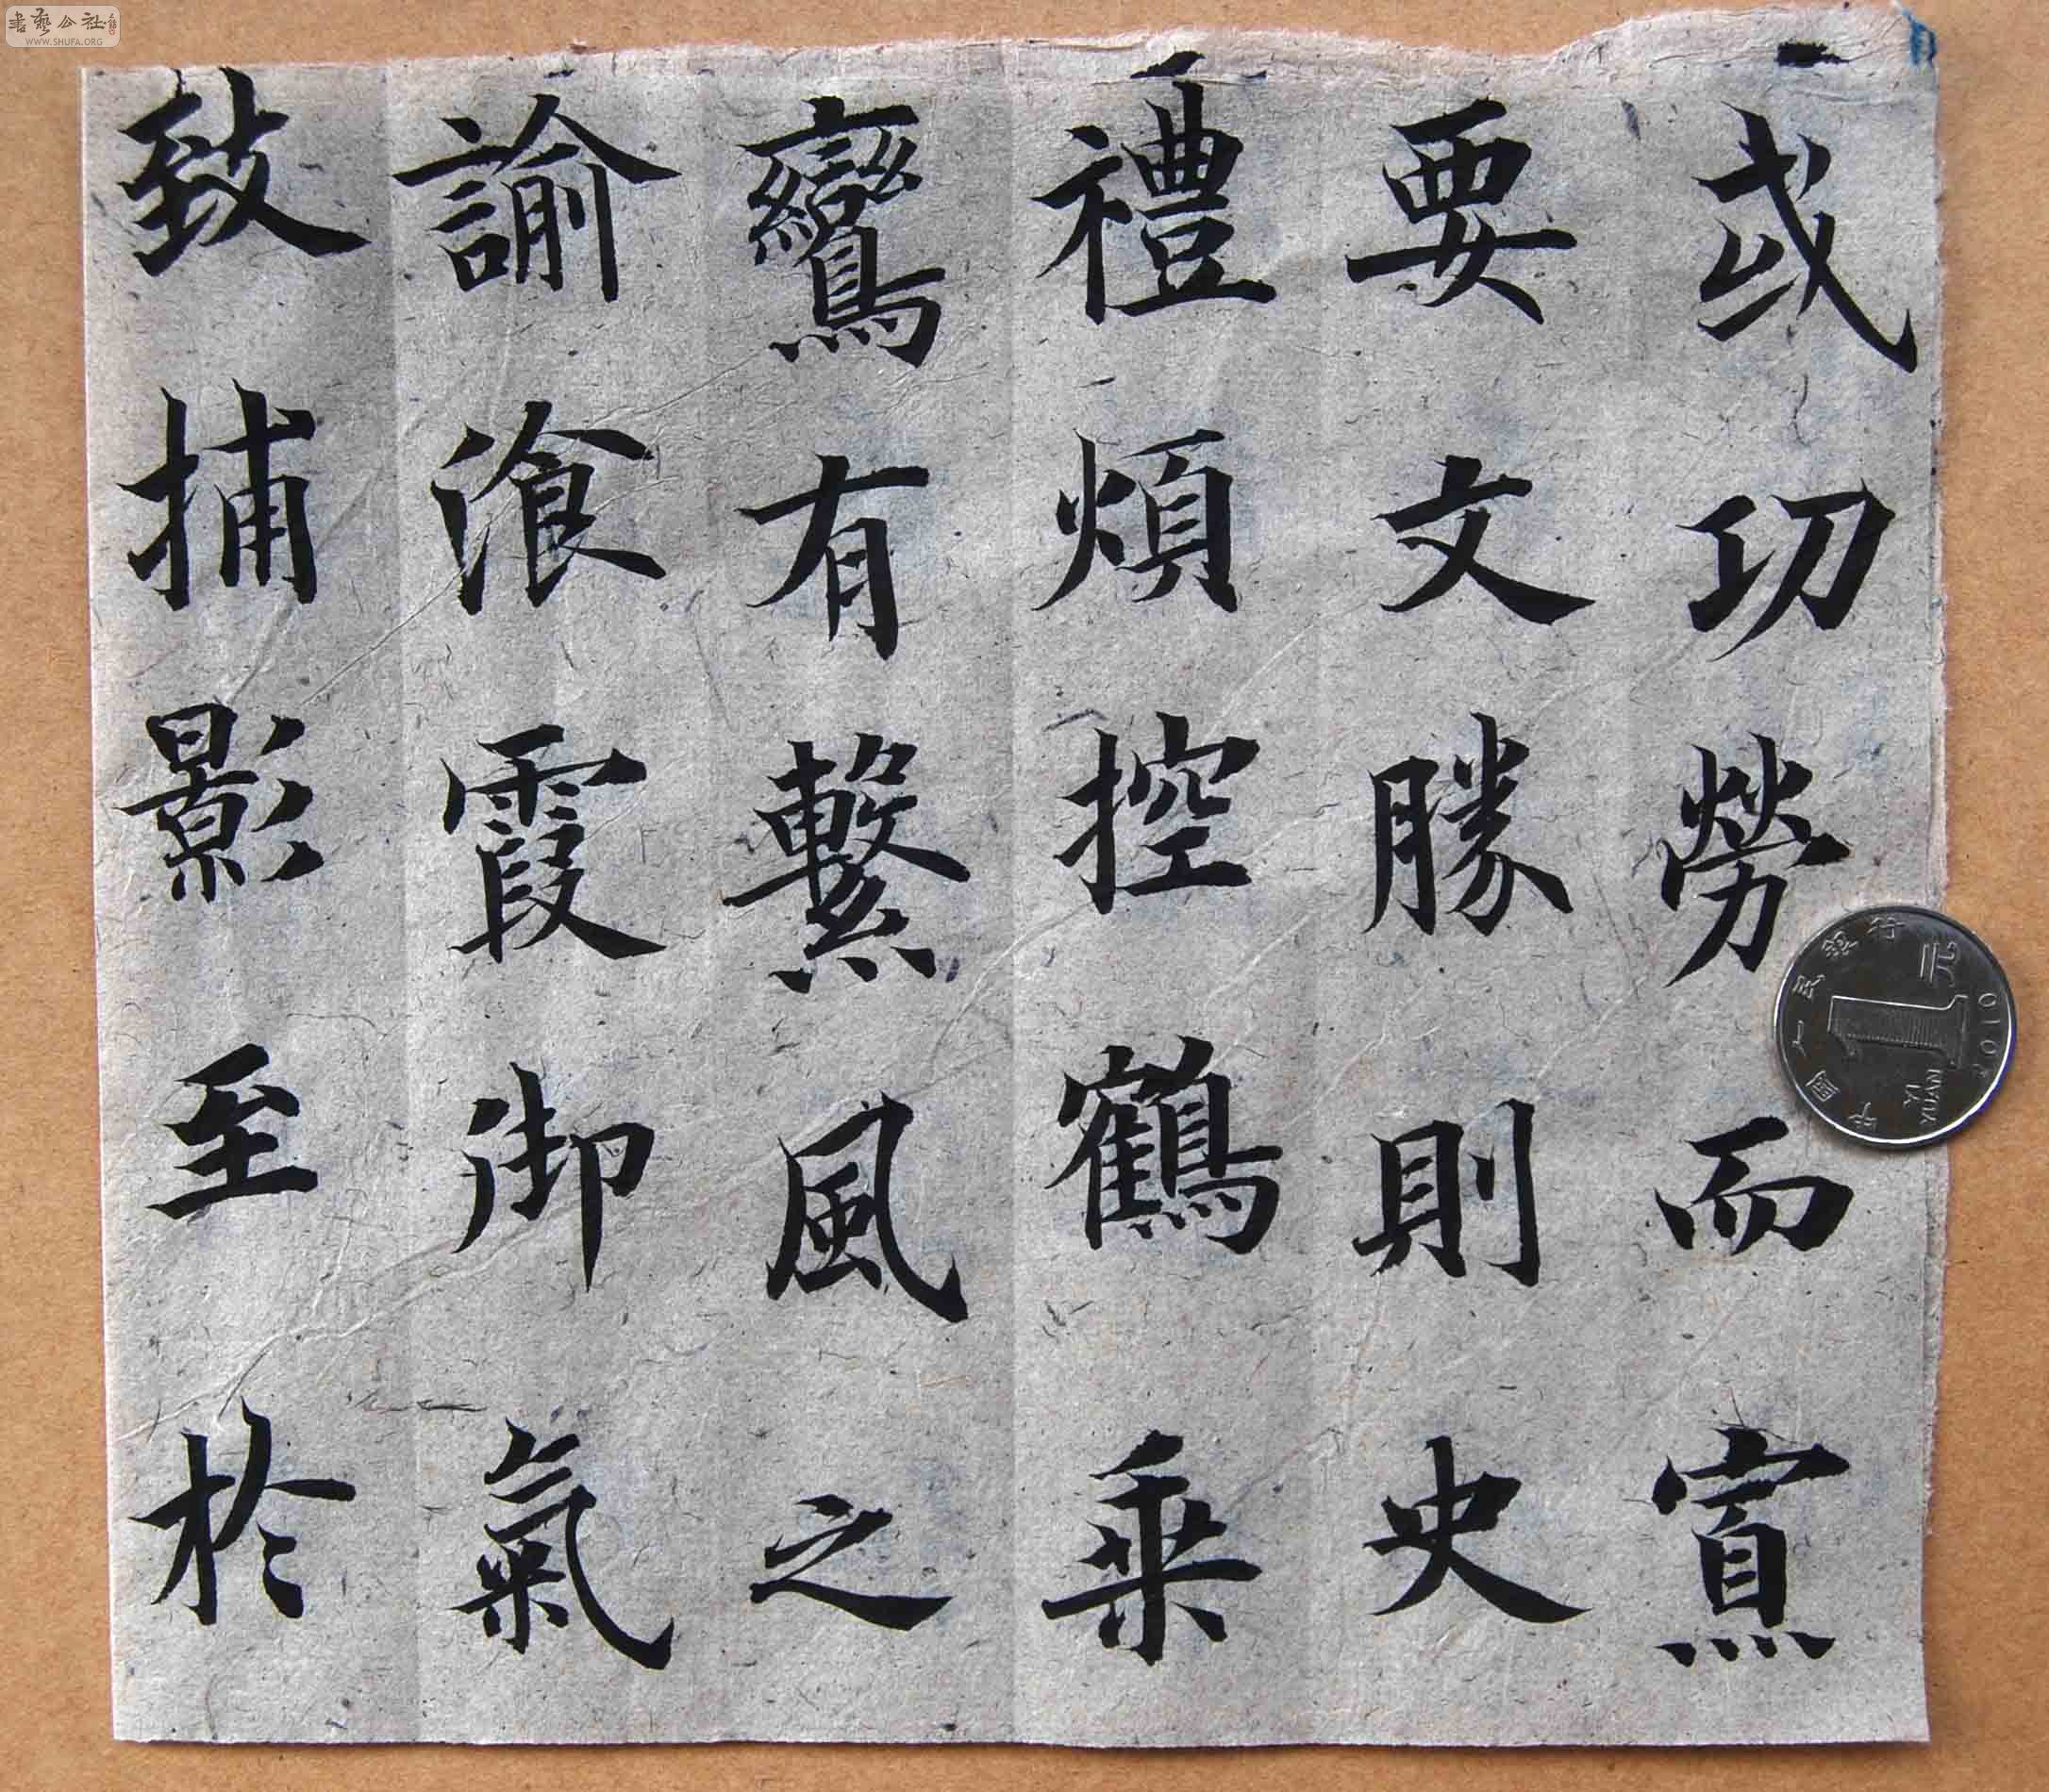 或功勞而寡
要文勝則史
禮煩控鶴乘
鸞有繫風之
諭湌霞御氣
致捕影至於
書藝公社
WWW.SHUFA.ORG
中国人民银行
1 元
YI YUAN
2010